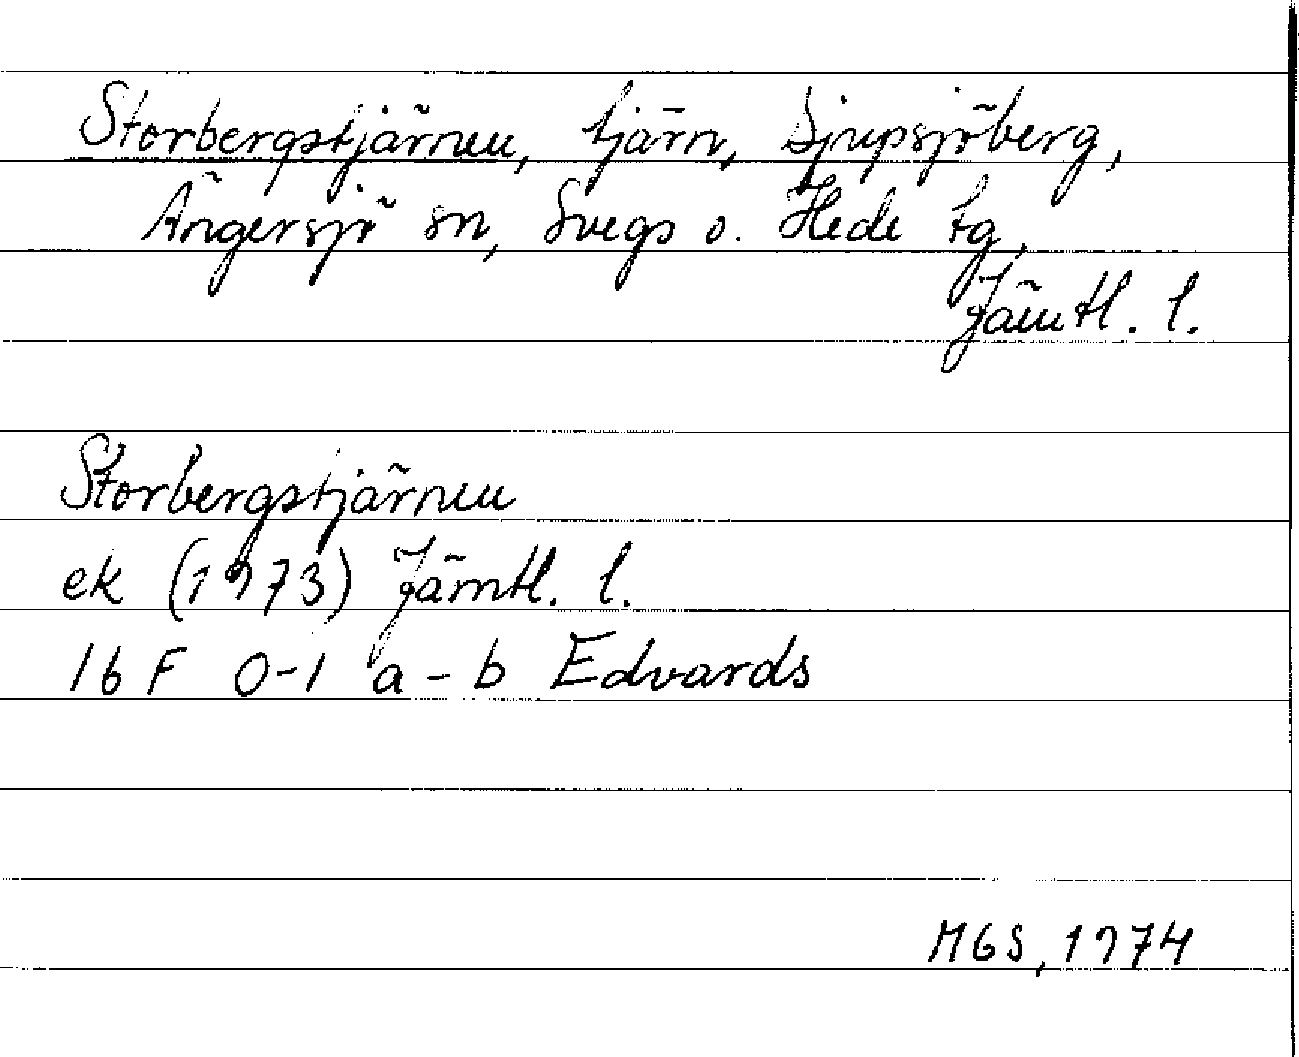 Storbergstjärnen, tjärn, Djupsjöberg,
Ängersjö sn, Svegs o. Hede tg,
Jämtl. l.
Storbergstjärnen
ek (1973) Jämtl. l.
16 F 0-1 a-b Edvards
MGS, 1974